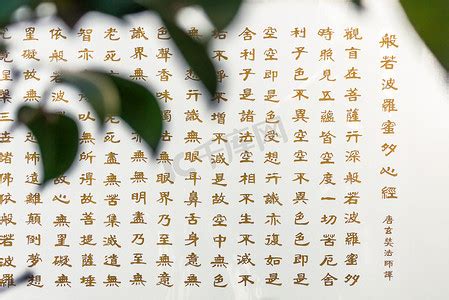 般若波羅蜜多心經
唐玄奘法師譯
觀自在菩薩行深般若波羅蜜多
時照見五蘊皆空度一切苦厄舍
利子色不異空空不異色色即是
空空即是色受想行識亦復如是
舍利子是諸法空相不生不滅不
不淨不增不減是故空中無色
行識無眼耳鼻舌身意無
色聲香味觸法無眼界乃至無意
識界無無明盡乃至無
老死亦無老死盡無苦集滅道無
智亦以無所得故菩提薩埵
依般若波故心無罣礙無
罣礙故無怖遠離顛倒夢想
竟涅槃三世諸佛依般若波羅
千库网